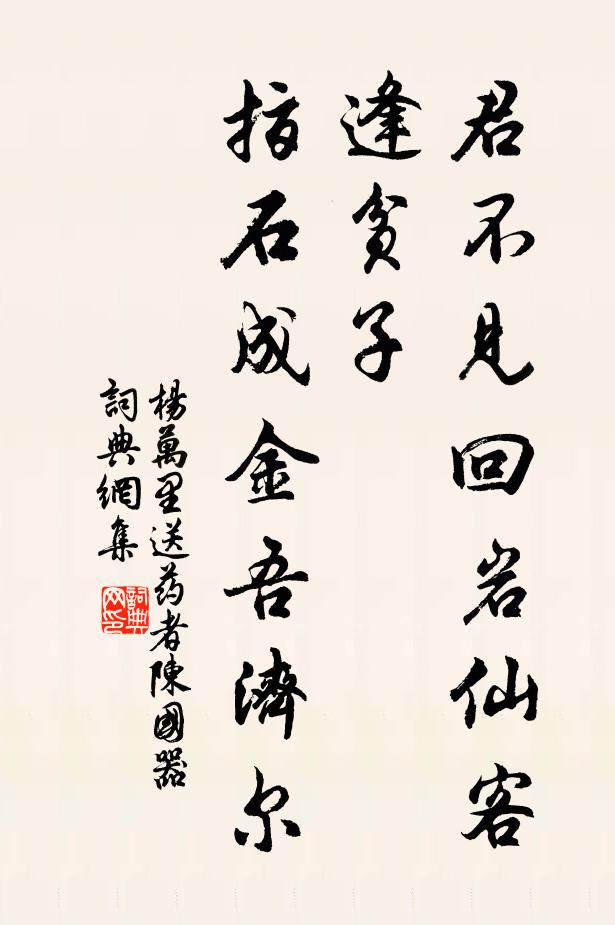 君不見回岩仙客
逢貧子
指石成金吾濟尔
楊萬里送药者陳國器
詞典網集
詞典网印